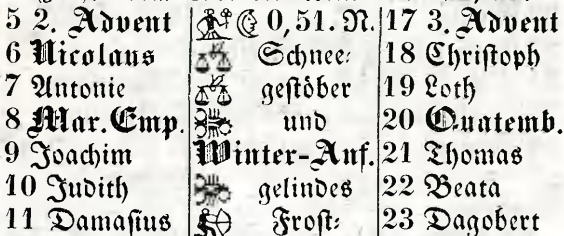 5 2. Advent 0,51. N. 17 3. Advent
6 Nicolaus Schnee⸗ 18 Christoph
7 Antonie gestöber 19 Loth
8 Mar. Emp. und 20 Quatemb.
9 Joachim Winter-Anf. 21 Thomas
10 Judith gelindes 22 Beata
11 Damasius Frost⸗ 23 Dagobert